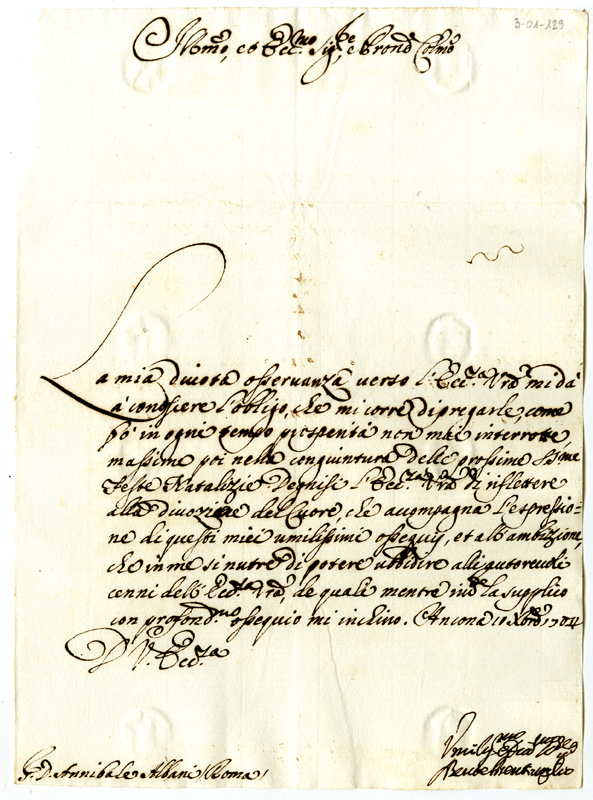 3-01-129
Illmo, et Ecc.mo Sig.re e Pron Colmo
La mia diuota osseruanza uerso l'Ecc.za Vra mi dà
à conoscere l'obligo, che mi corre di pregarle, come
fò in ogni tempo prosperità non mai interrotte,
massime poi nella congiuntura delle prossime S.me
Feste Natalizie. Degnisi l'Ecc.za Vra di riflettere
alla diuozione del Cuore, che accompagna l'espressio=
ne di questi miei umilissimi ossequij, et all'ambizione,
che in me si nutre di potere ubbidire alli autoreuoli
cenni dell'Ecc.za Vra, de quali mentre la supplico
con profond.mo ossequio mi inchino. Ancona 10 Xbre 1704
D V. Ecc.za
S. D. Annibale Albani (Roma)